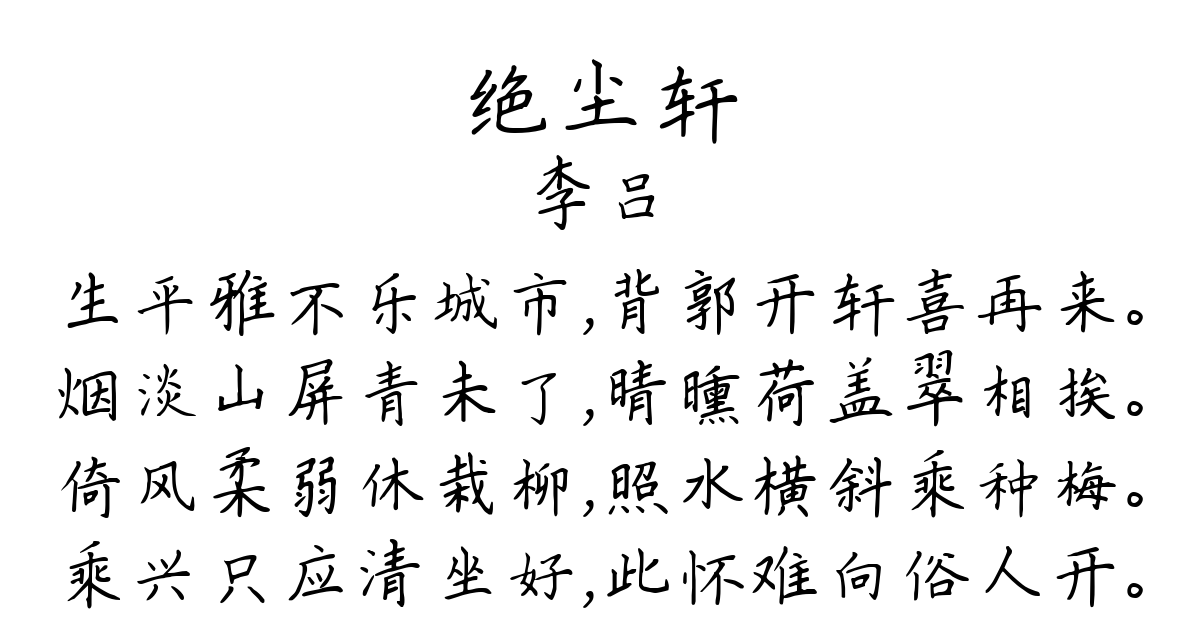 绝尘轩
李吕
生平雅不乐城市,背郭开轩喜再来。
烟淡山屏青未了,晴曛荷盖翠相挨。
倚风柔弱休栽柳,照水横斜乘种梅。
乘兴只应清坐好,此怀难向俗人开。